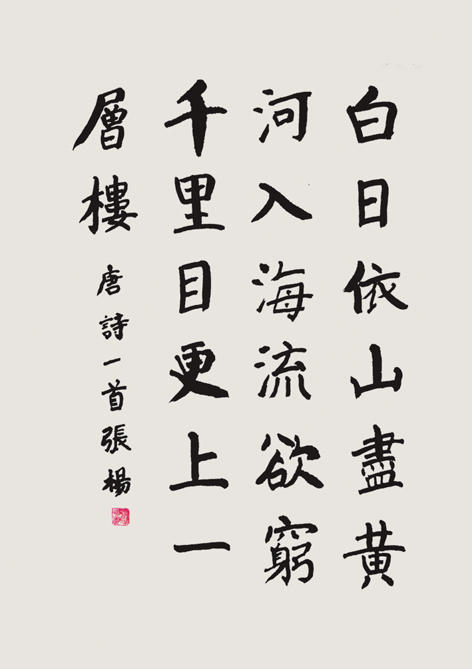 白日依山盡黃
河入海流欲窮
千里目更上一
層樓
唐詩一首張楊